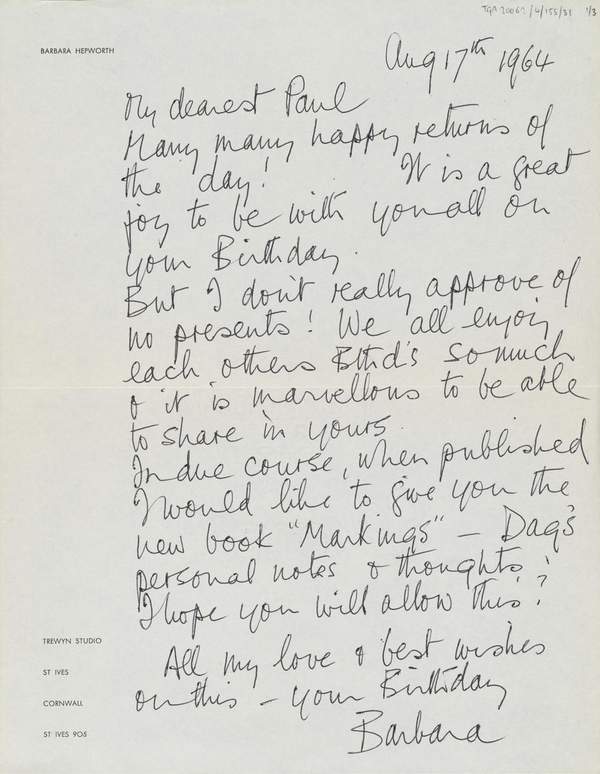 TGA 20062/4/155/31 1/3
BARBARA HEPWORTH
Aug 17th 1964
My dearest Paul
Many many happy returns of
the day! It is a great
joy to be with you all on
your Birthday.
But I don't really approve of
no presents! We all enjoy
each others Bthd's so much
& it is marvellous to be able
to share in yours.
In due course, when published
I would like to give you the
new book "Markings" — Dag's
personal notes & thoughts.
I hope you will allow this?
All my love & best wishes
on this – your Birthday
Barbara
TREWYN STUDIO
ST IVES
CORNWALL
ST IVES 905